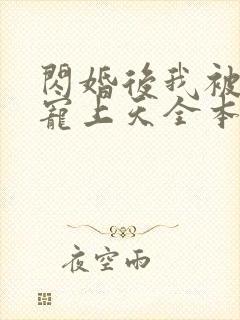 閃婚後我被
寵上天全本
夜空雨